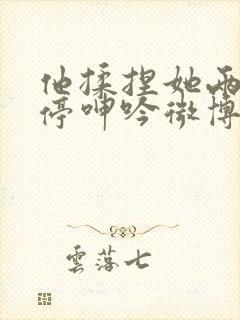 他揉捏她两
停呻吟微博
雲落七